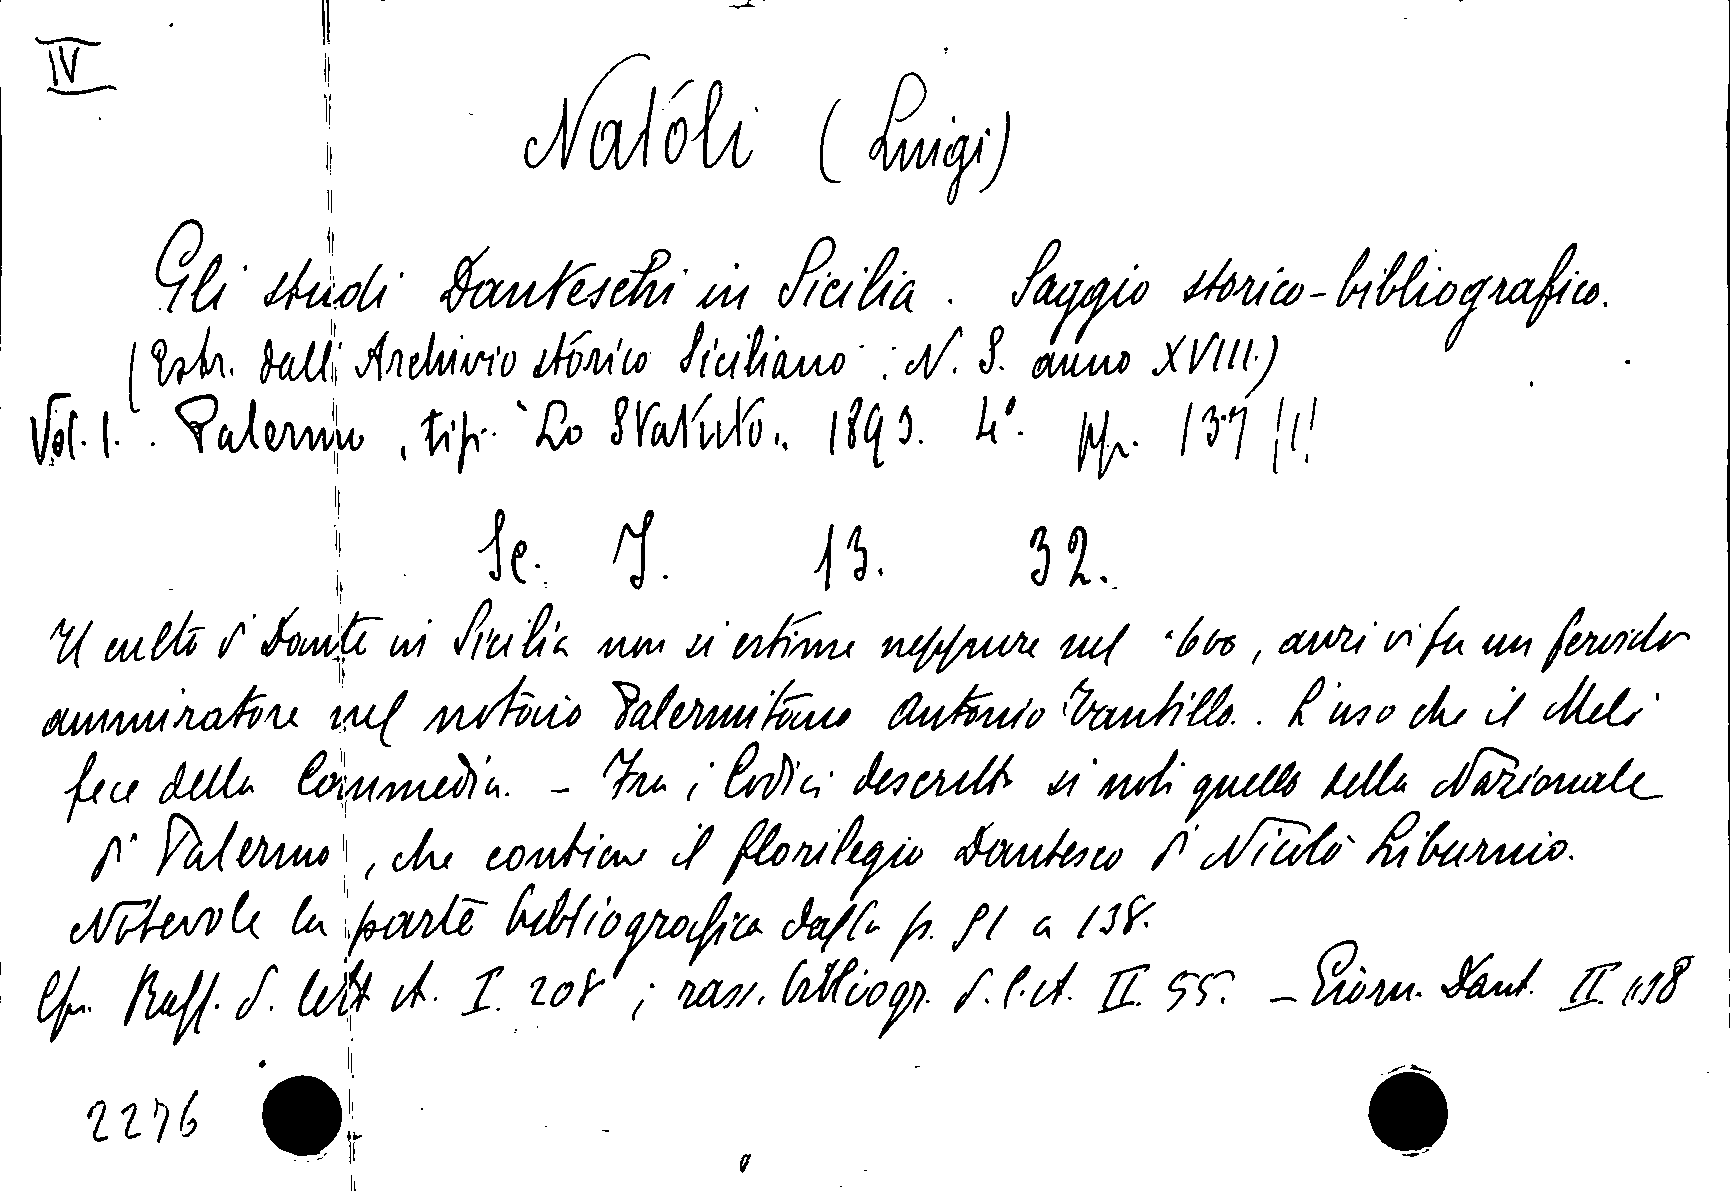 IV
Natóli (Luigi)
Gli studi Danteschi in Sicilia. Saggio storico-bibliografico.
(Estr. dall' Archivio stórico Siciliano: N. S. anno XVIII.)
Vol. 1. Palermo, tip. "Lo Statuto„ 1893. 4°. pp. 137
Sc. I. 13. 32.
Il culto di Dante in Sicilia non si estinse neppure nel '600, anzi vi fu un fervido
ammiratore nel notaio Palermitano Antonio. L'uso che il Meli
fece della Commedia. – Fra i Codici descritti si noti quello della Nazionale
di Palermo, che contiene il florilegio Dantesco di Nicolò Liburnio.
Notevole la parte bibliografica dalla p. 91 a 138.
Cfr. d. lett. it. I. 208; rass. bibliogr. d. l. it. II. 55. – Giorn. Dant. II.
2276